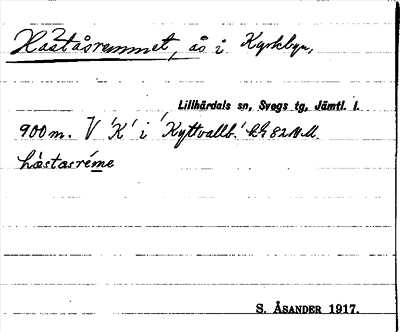 Häståsremmet, ås i Kyrkbyn,
Lillhärdals sn, Svegs tg, Jämtl. l.
900 m. V 'K' i 'Kyttvallb.'
hästasréme
S. ÅSANDER 1917.